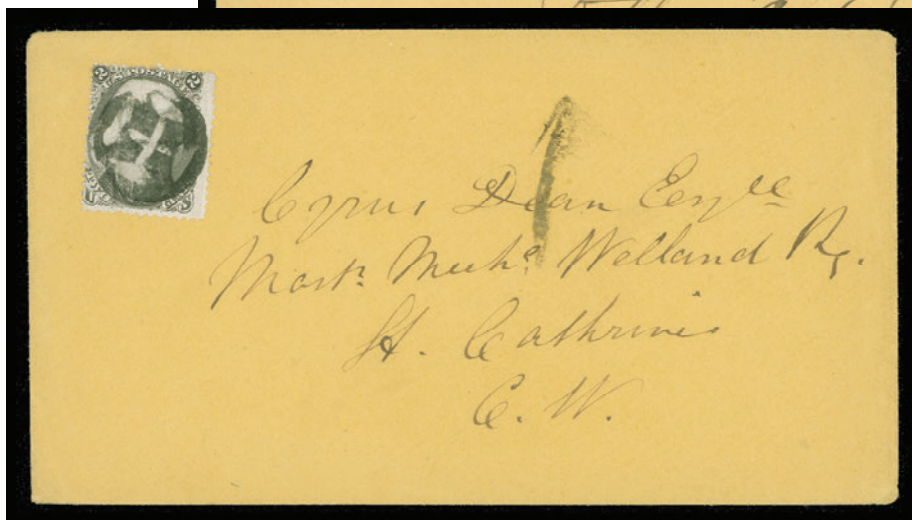 2 2
U.S. POSTAGE
1
Cyrus Dean Esqre
Mastr. Mechc. Welland Ry.
St. Cathrines
C. W.